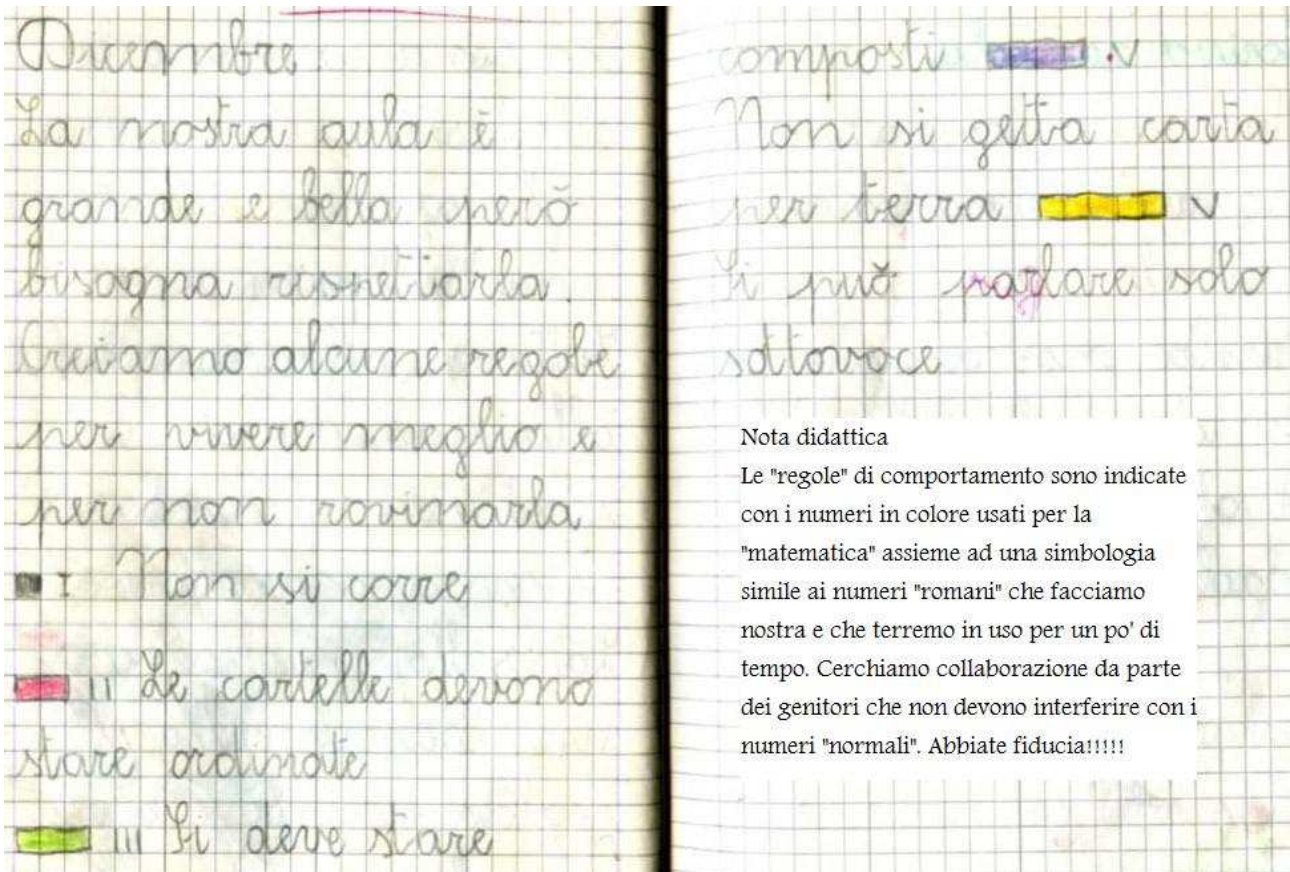 Dicembre
La nostra aula è
grande e bella però
bisogna rispettarla.
Creiamo alcune regole
per vivere meglio e
per non rovinarla
I Non si corre
II Le cartelle devono
stare ordinate
III Si deve stare
composti IV
Non si getta carta
per terra V
Si può parlare solo
sottovoce
Nota didattica
Le "regole" di comportamento sono indicate
con i numeri in colore usati per la
"matematica" assieme ad una simbologia
simile ai numeri "romani" che facciamo
nostra e che terremo in uso per un po' di
tempo. Cerchiamo collaborazione da parte
dei genitori che non devono interferire con i
numeri "normali". Abbiate fiducia!!!!!